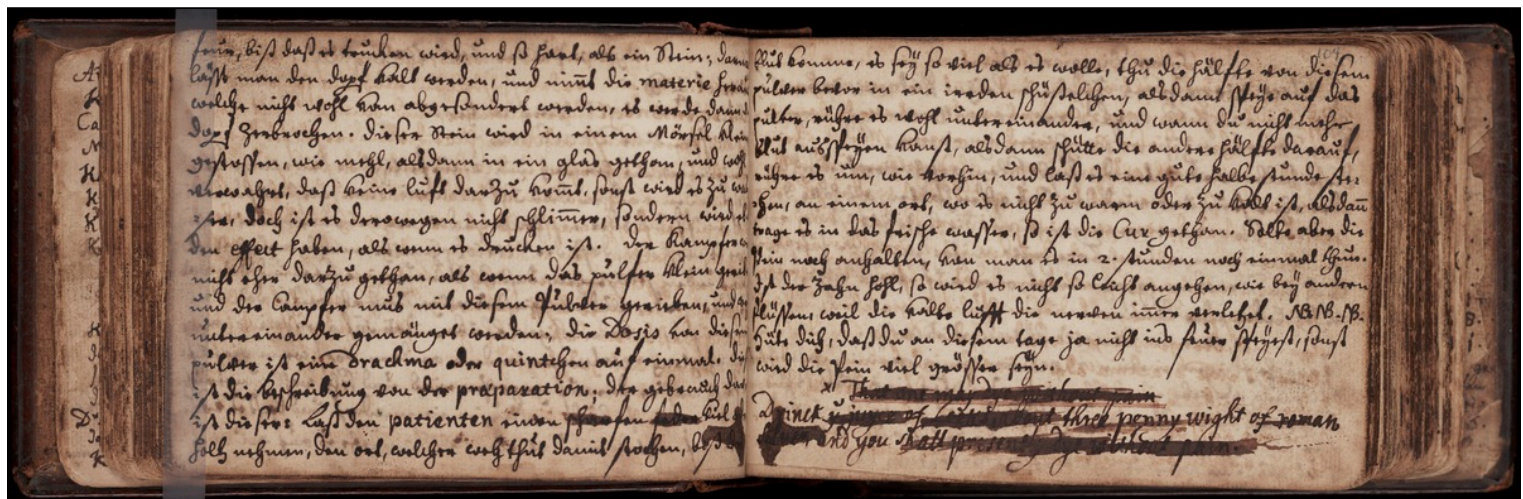 feur, biß daß es trucken wird, und so hart, als ein Stein; dann
läßt man den dopf kalt werden, und nimt die materie herau
welche nicht wohl kan abgesondert werden, es werde dann d
dopf zerbrochen. dieser Stein wird in einem Mörsel klein
gestossen, wie mehl, alsdann in ein glas gethan, und woh
verwahrt, daß keine luft darzu komt, sonst wird es zu wa
doch ist es derowegen nicht schlimmer, sondern wird
den effect haben, als wenn es drucken ist. der Kampfer
nicht eher darzu gethan, als wenn das pulfer klein
und der Campfer mus mit diesem Pulver gerieben, und
untereinander gemänget werden; die Dosis von diesem
pulver ist eine drachma oder quintchen auf einmal. di
ist die beschreibung von der præparation; der gebrauch da
ist dieser: Laß den patienten einen scharfen feder kiel
holtz nehmen, den ort, welcher weh thut damit stochen, biß
blut komme, es sey so viel als es wolle, thu die hälffte von diesem
pulver bevor in ein irrden schüßelchen, alsdann speye auf das
pulver, rühre es wohl untereinander, und wann du nicht mehr
blut ausspeyen kanst, alsdann schütte die andere hälffte darauf,
rühre es um, wie vorhin, und laß es eine gute halbe stunde ste-
hen, an einem ort, wo es nicht zu warm oder zu kalt ist, alsdann
trage es in das frische wasser, so ist die Cur gethan. Solte aber die
Pein noch anhalten, kan man es in 2. stunden noch einmal thun.
Ist der Zahn hohl, so wird es nicht so leicht angehen, wie bey andern
flüssen, weil die kalte lufft die nerven immer verletzt. NB. NB. NB.
Hüte dich, daß du an diesem tage ja nicht ins feuer speyest, sonst
wird die Pein viel grösser seyn.
That one may dye without pain
Drinck y juyce of three penny wight of roman
and you shall presently dye without pain.